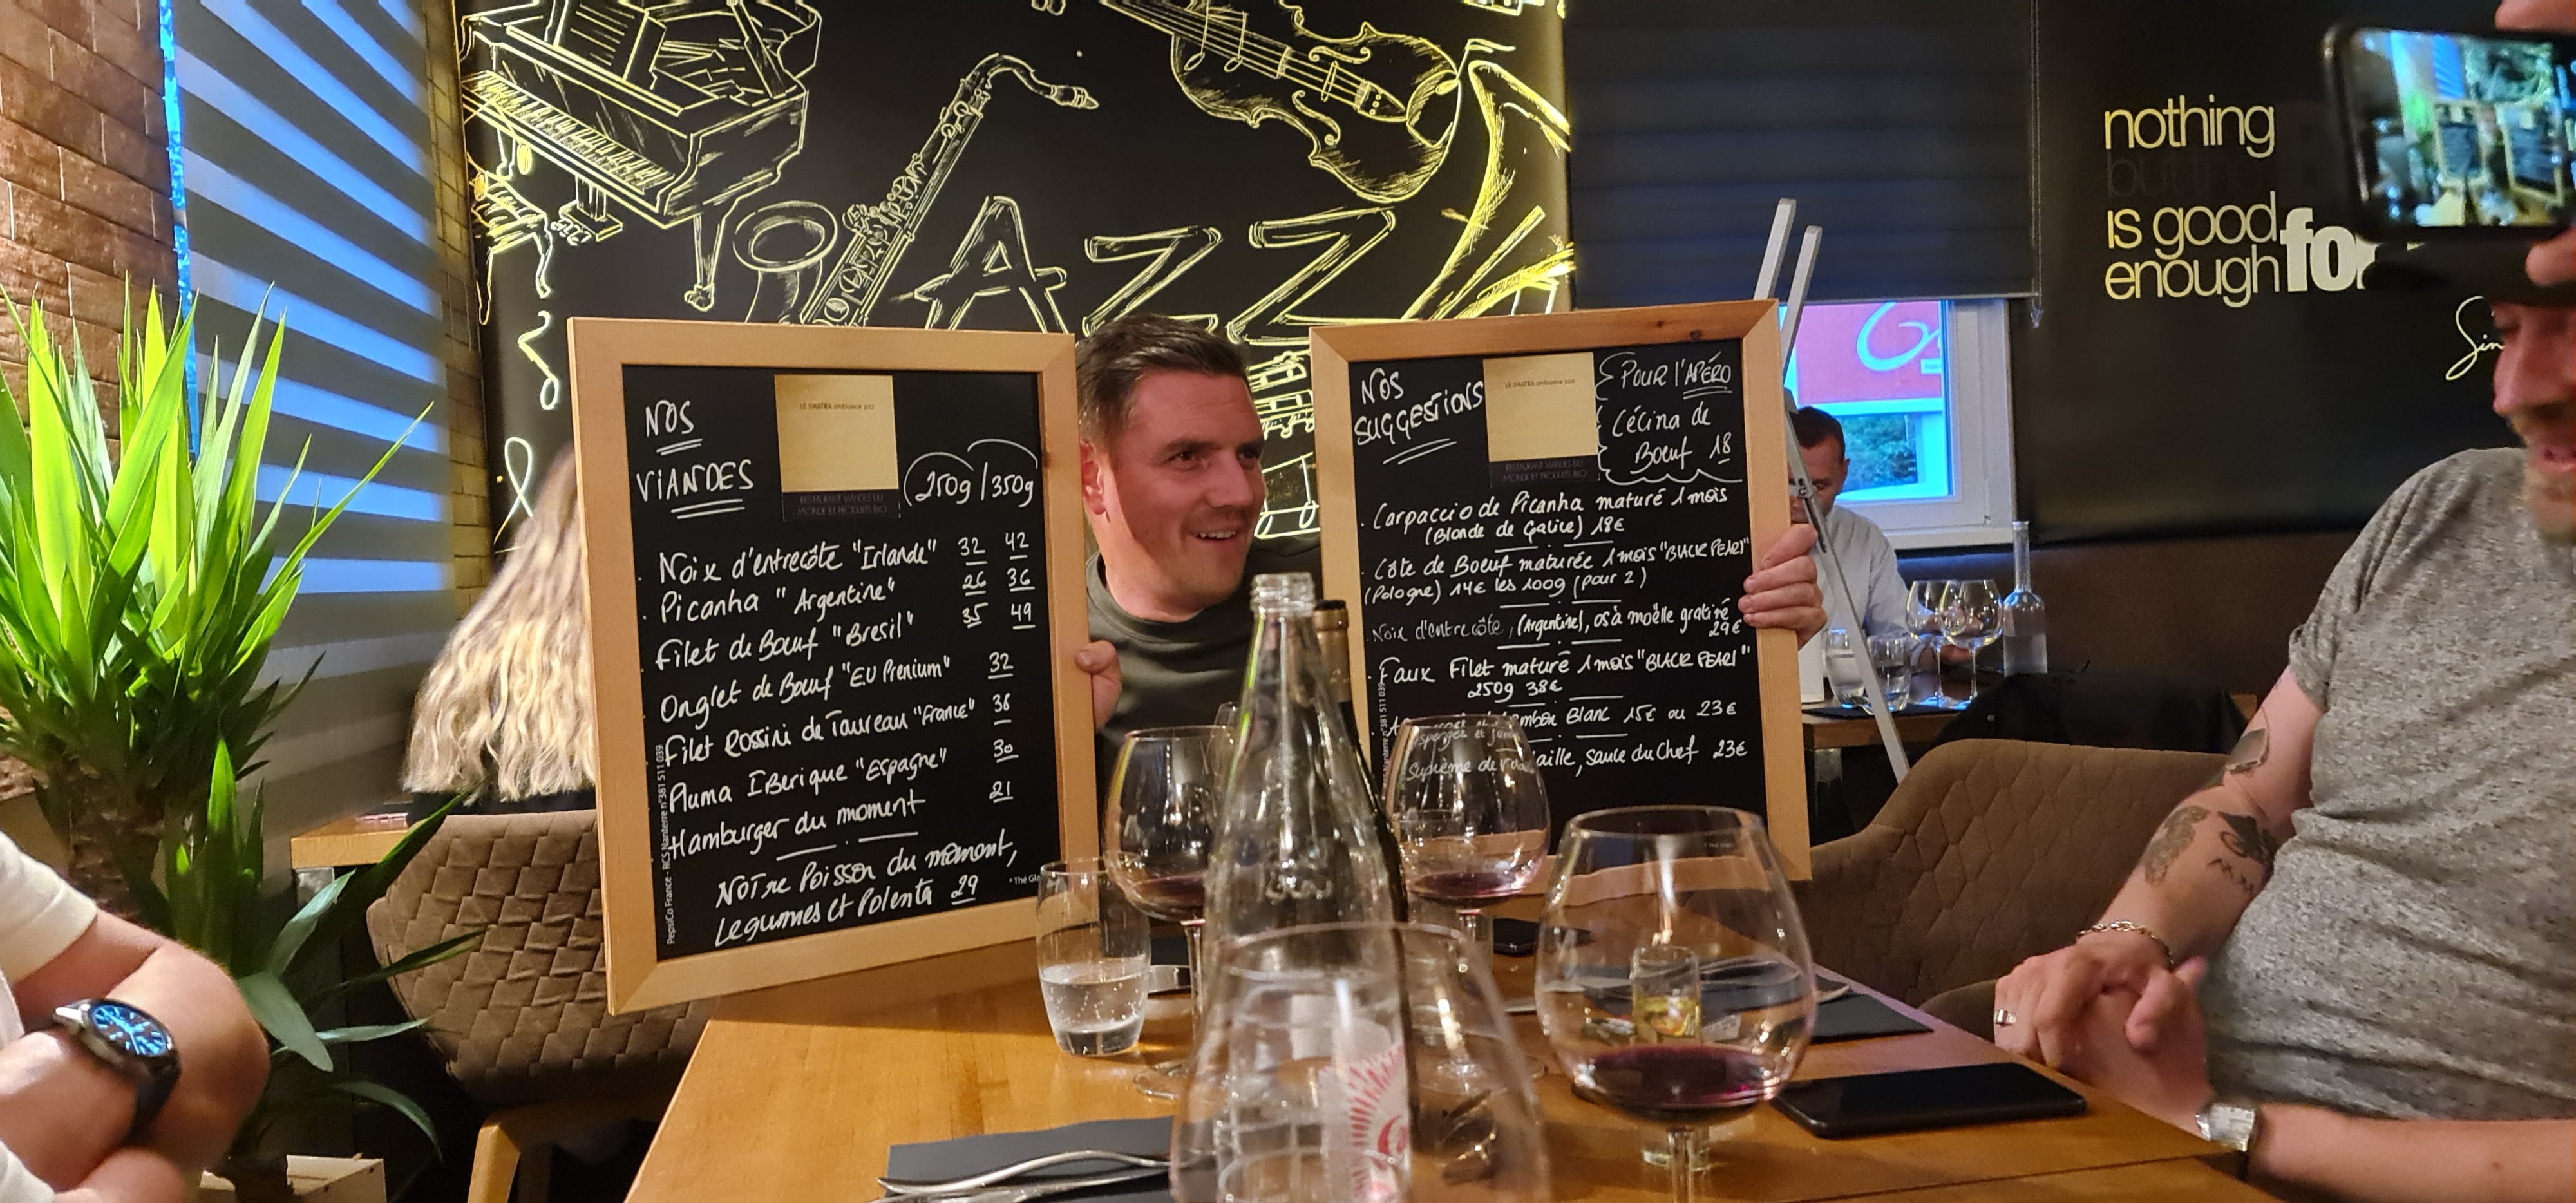 JAZZ
nothing
but the
is good
enough for
Sin
NOS
VIANDES
LE SINATRA ambiance jazz
RESTAURANT VIANDES DU
MONDE ET PRODUITS BIO
250g / 350g
Noix d'entrecôte "Irlande" 32 42
. Picanha "Argentine" 26 36
. Filet de Bœuf "Bresil" 35 49
Onglet de Bœuf "EU Prenium" 32
Filet Rossini de Taureau "France" 36
Pluma IBerique "Espagne" 30
Hamburger du moment 21
NOTre Poisson du moment,
Legumes et Polenta 29
PepsiCo France - RCS Nanterre n°381 511 039
NOS
SUGGESTIONS
LE SINATRA ambiance jazz
RESTAURANT VIANDES DU
MONDE ET PRODUITS BIO
POUR l'APÉRO
Cécina de
Bœuf 18
. Carpaccio de Picanha maturé 1 mois
(Blonde de Galice) 18€
. Côte de Boeuf maturée 1 mois "BLACK PEARL"
(Pologne) 14€ les 100g (pour 2)
. Noix d'entrecôte, (Argentine), os à moëlle gratiné
29€
. Faux Filet maturé 1 mois "BLACK PEARL"
250g 38€
Asperges et Jambon Blanc 15€ ou 23€
Suprème de volaille, sauce du Chef 23€
n°381 511 039